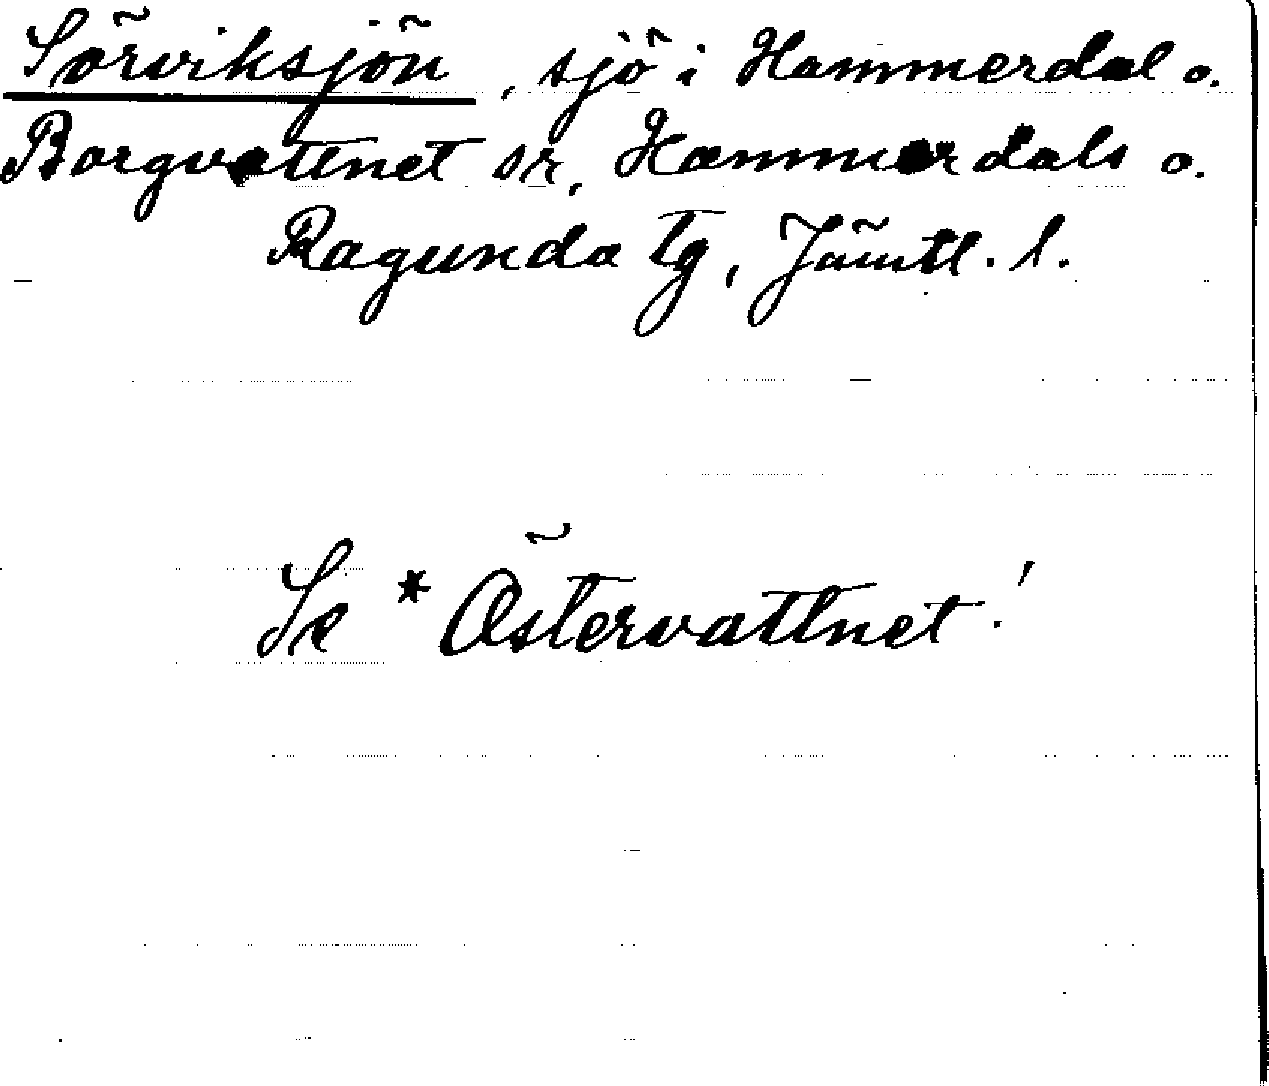 Sörviksjön, sjö i Hammerdal o.
Borgvattnet sr, Hammerdals o.
Ragunda tg, Jämtl. l.
Se * Östervattnet!